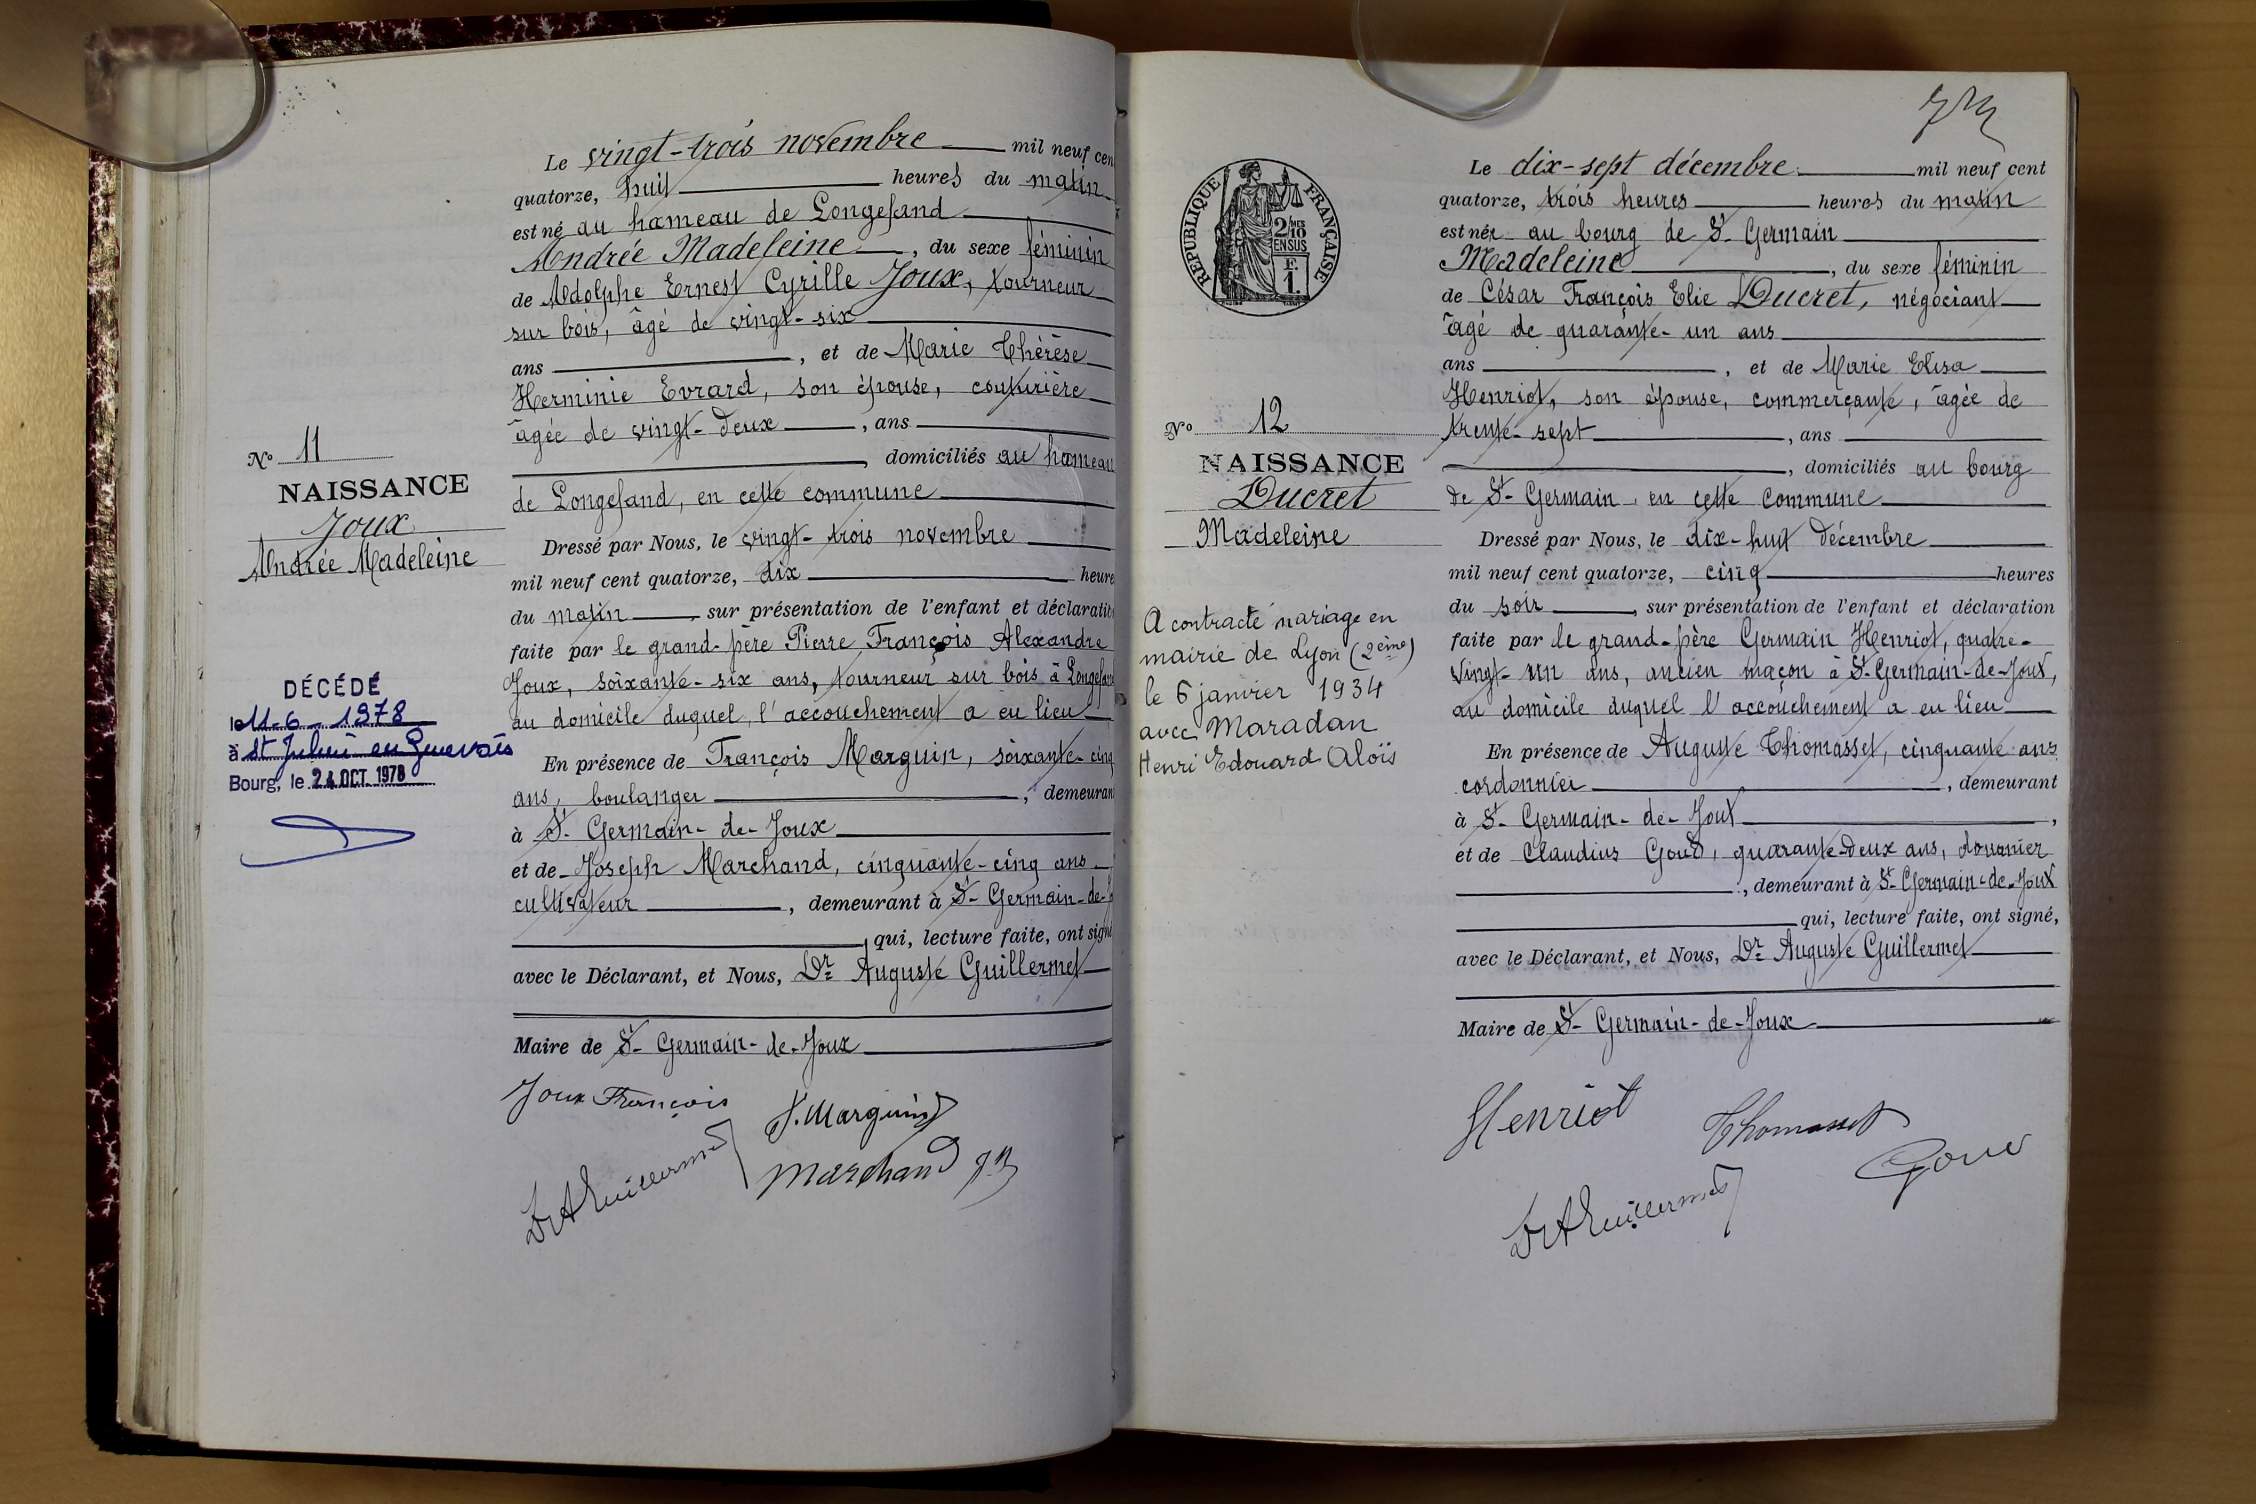 Le vingt-trois novembre mil neuf cen
quatorze, huit heures du matin
est né au hameau de Longefand
Andrée Madeleine, du sexe féminin
de Adolphe Ernest Cyrille Joux, tourneur
sur bois, âgé de vingt-six
ans, et de Marie Thérèse
Herminie Evrard, son épouse, couturière
âgée de vingt-deux, ans
, domiciliés au hameau
de Longefand, en cette commune
Dressé par Nous, le vingt-trois novembre
mil neuf cent quatorze, dix heure
du matin sur présentation de l'enfant et déclaratio
faite par le grand-père Pierre François Alexandre
Joux, soixante-six ans, tourneur sur bois à Longefand
au domicile duquel l'accouchement a eu lieu
En présence de François Marguin, soixante-cinq
ans, boulanger, demeuran
à St-Germain-de-Joux
et de Joseph Marchand, cinquante-cinq ans
cultivateur, demeurant à St-Germain-de-J
, qui, lecture faite, ont signé
avec le Déclarant, et Nous, Dr Auguste Guillermet
Maire de St-Germain-de-Joux
Joux François
F. Marguin
Dr A Guillermet
Marchand
No 11
NAISSANCE
Joux
Andrée Madeleine
DÉCÉDÉ
le 11-6-1978
à St Julien en Genevois
Bourg, le 24 OCT. 1978
RÉPUBLIQUE FRANÇAISE
2/10 MES
EN SUS
F.
1.
No 12
NAISSANCE
Ducret
Madeleine
A contracté mariage en
mairie de Lyon (2ème)
le 6 janvier 1934
avec Maradan
Henri Edouard Aloïs
Le dix-sept décembre mil neuf cent
quatorze, trois heures heures du matin
est née au bourg de St Germain
Madeleine, du sexe féminin
de César François Elie Ducret, négociant
âgé de quarante-un ans
ans, et de Marie Elisa
Henriot, son épouse, commerçante, âgée de
trente-sept, ans
, domiciliés au bourg
de St-Germain en cette commune
Dressé par Nous, le dix-huit décembre
mil neuf cent quatorze, cinq heures
du soir, sur présentation de l'enfant et déclaration
faite par le grand-père Germain Henriot, quatre-
vingt-un ans, ancien maçon à St-Germain-de-Joux,
au domicile duquel l'accouchement a eu lieu
En présence de Auguste Thomasset, cinquante ans
cordonnier, demeurant
à St-Germain-de-Joux,
et de Claudius Goud, quarante-deux ans, douanier
, demeurant à St-Germain-de-Joux
qui, lecture faite, ont signé,
avec le Déclarant, et Nous, Dr Auguste Guillermet
Maire de St-Germain-de-Joux
Henriot
Thomasset
Dr A Guillermet